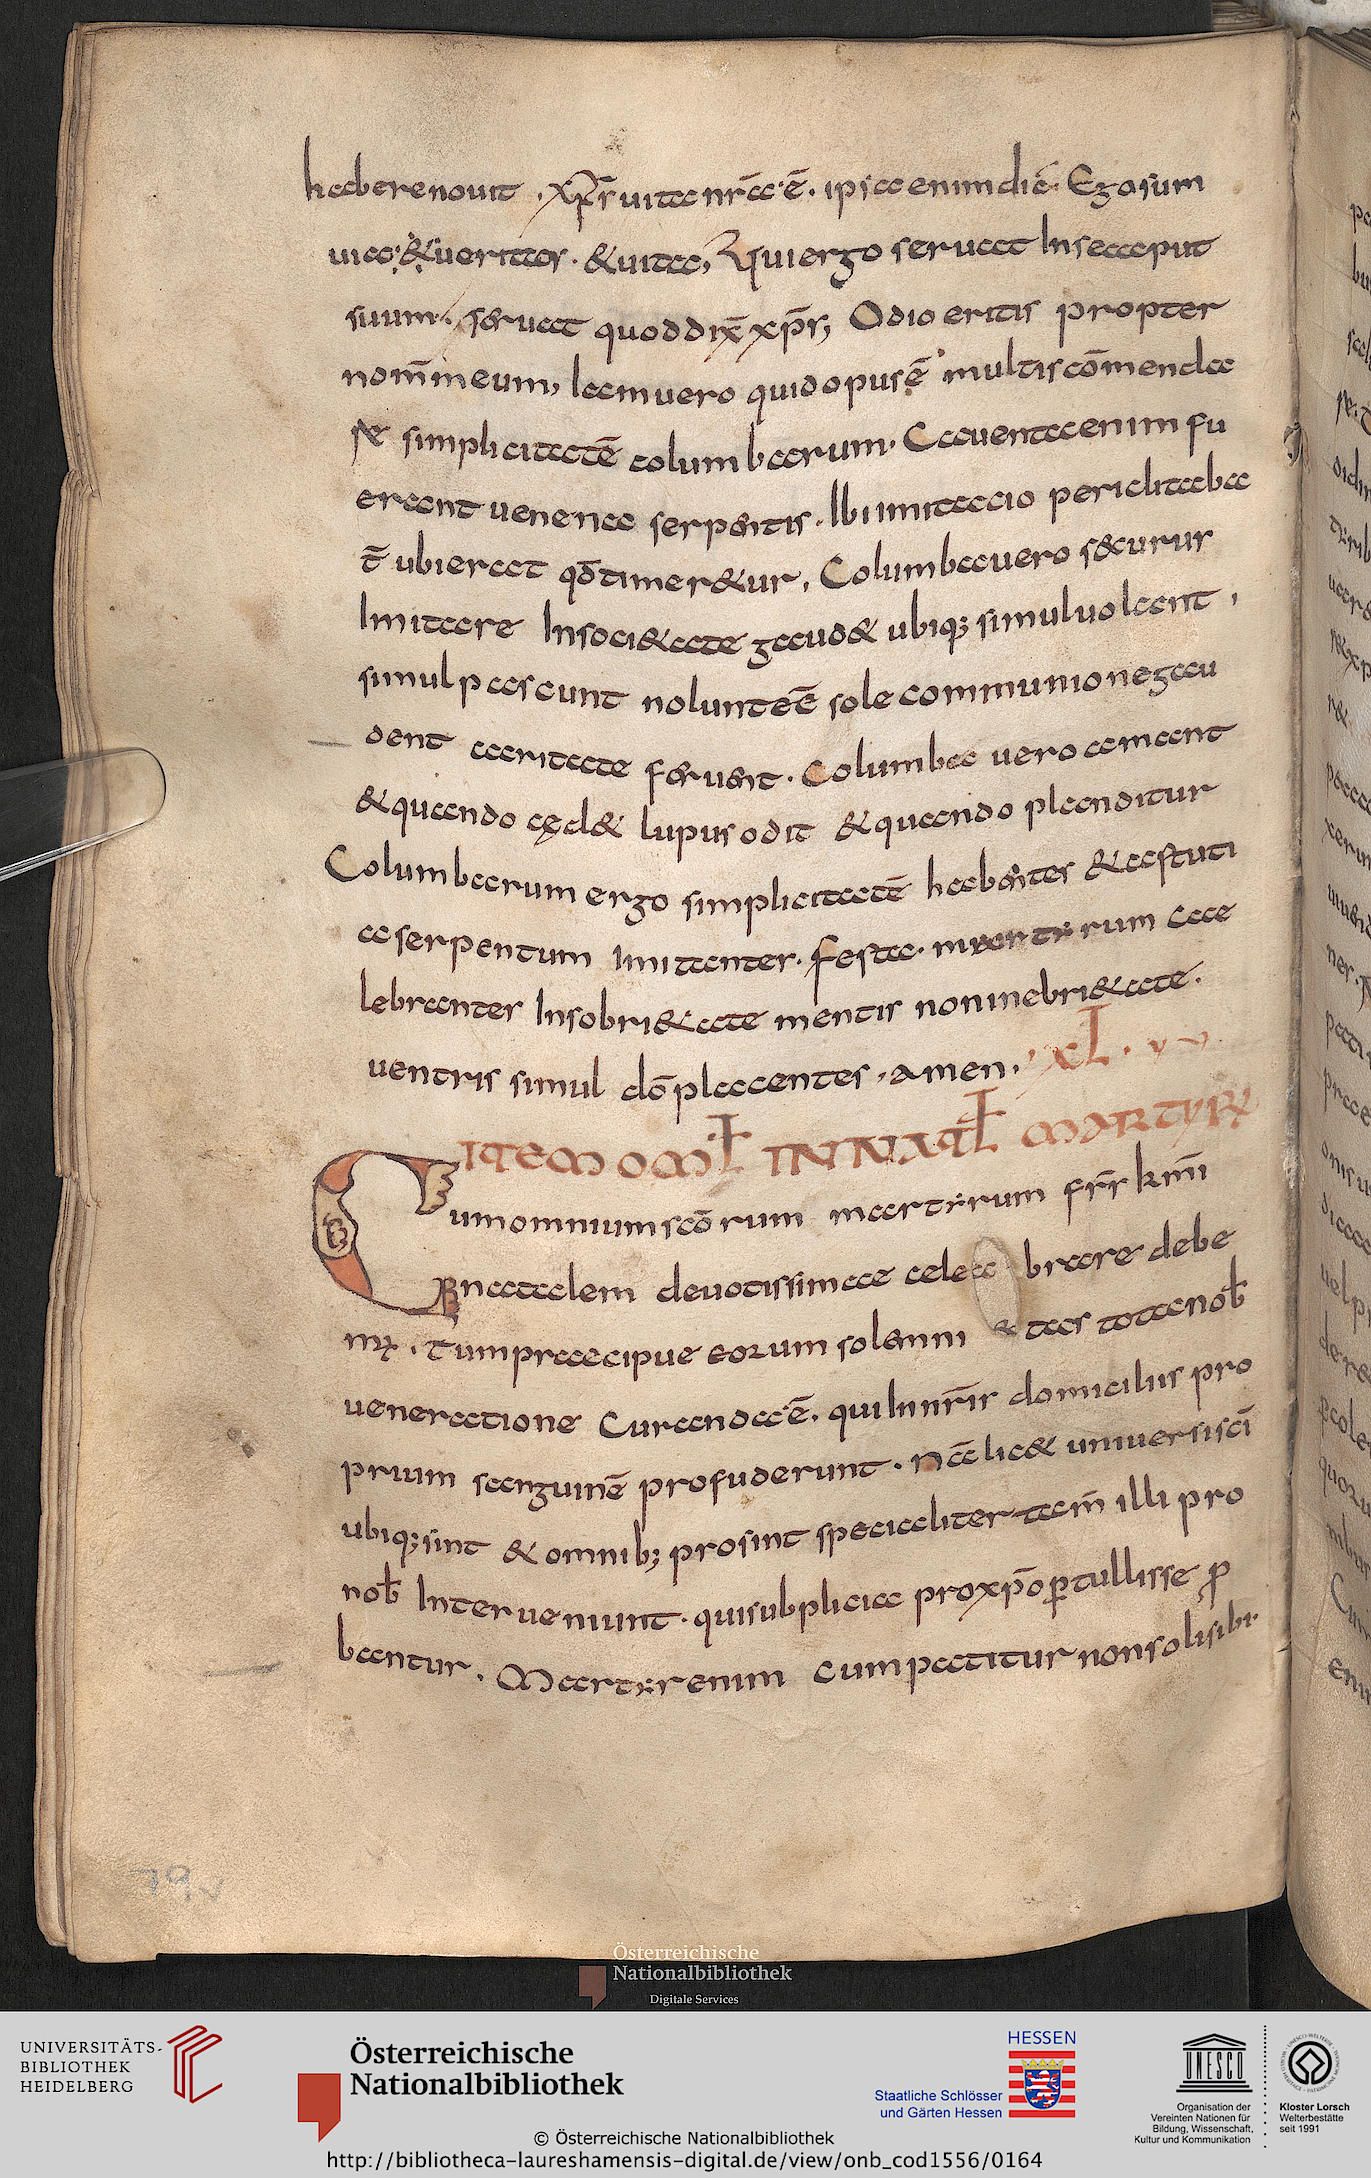 haberenouit · xp̅s uita nr̅a ē. ipsa enim dic̄. Ego sum
uia; & ueritas. & uita; Qui ergo seruat In se caput
suum. seruat quod dix̅ xp̅s; Odio eritis propter
nom̅ meum, Iam uero quid opus ē multis co̅menda
re simplicitatē columbarum. Cauenta enim fu
erant uenena serpentis. Ibi imitacio periclitaba
t̅ ubi erat qd̅ timer&ur, Columba uero securus
Imitare In soci&ate gaud& ubiq; simul uolant,
simul pascunt nolunt eē sole communione gau
dent caritate feruent. Columba uero amant
& quando cęd& lupus odit & quando planditur
Columbarum ergo simplicitatē habentes & astuti
a serpentum Imitanter. Festa. martyrum cae
lebrantes In sobri&ate mentis non inebri&ate.
uentris simul dō placentes. amen. XL.
ITEM OML IN NATL MARTYRV
Cum omnium scōrum martyrum frs̅ kmi̅
natalem deuotissimae cele brare debe
mus. Tum praecipue eorum solemni tas tota nob̅
ueneratione Curanda ē. qui In nr̅is domiciliis pro
prium sanguinē profuderunt. Na̅ lic& uniuersi sci̅
ubiq; sint & omnib; prosint specialiter tam̅ illi pro
nob̅ Interueniunt. qui supplicia pro xp̅o ptullisse p
bantur. Martyr enim cum patitur non soli sibi.
79v
Österreichische
Nationalbibliothek
Digitale Services
UNIVERSITÄTS-
BIBLIOTHEK
HEIDELBERG
Österreichische
Nationalbibliothek
HESSEN
Staatliche Schlösser
und Gärten Hessen
UNESCO
Organisation der
Vereinten Nationen für
Bildung, Wissenschaft,
Kultur und Kommunikation
Kloster Lorsch
Welterbestätte
seit 1991
© Österreichische Nationalbibliothek
http://bibliotheca-laureshamensis-digital.de/view/onb_cod1556/0164